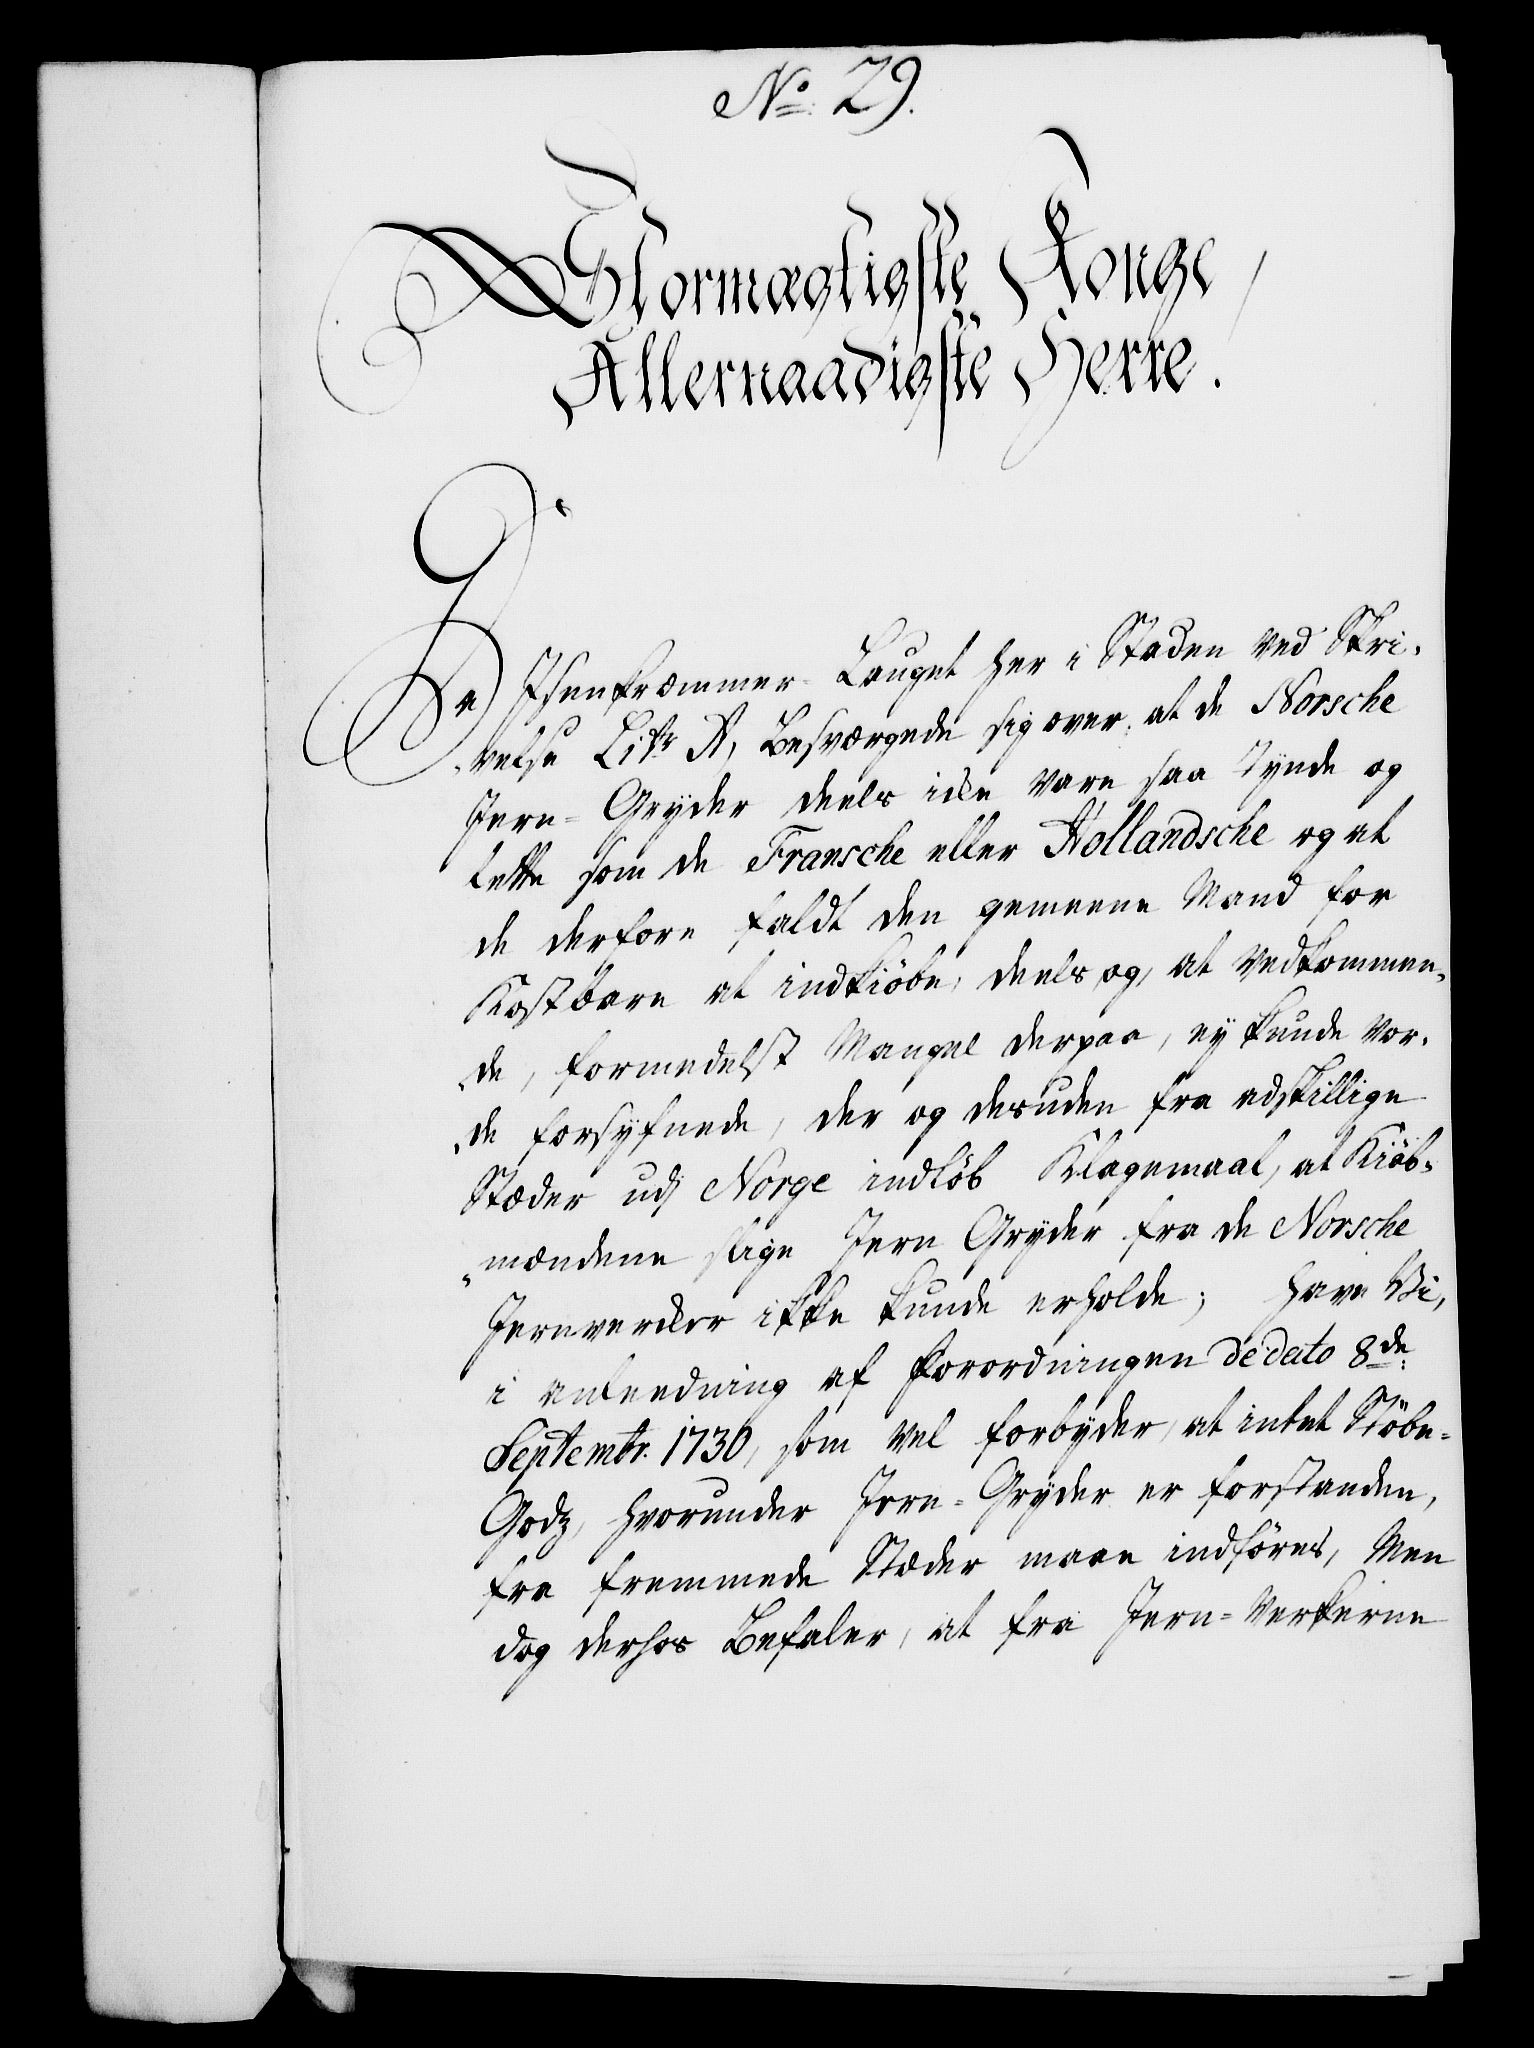 No: 29.
Stormægtigste Konge
Allernaadigste Herre.
Da Isenkræmmer-Lauget her i Staden ved Skri-
velse Litr A, Besværgede sig over, at de Norsche
Jern-Gryder deels icke vare saa tynde og
lette som de Fransche eller Hollandsche og at
de derfore faldt den gemeene Mand for
Kostbare at indkiöbe, deels og, at vedkommen-
de, formedelst Mangel derpaa, ey kunde vor-
de forsÿnede, der og desuden fra adskillige
Stæder udj Norge indlöb Klagemaal, at Kiöb-
mændene slige Jern Gryder fra de Norsche
Jernvercker ikke kunde erholde; have Vi,
i anleedning af Forordningen de dato 8de
Septembr. 1730, som vel forbyder, at intet Stöbe-
Godz, hvorunder Jern-Gryder er forstanden,
fra fremmede Stæder maae indföres, Men
dog derhos Befaler, at fra Jern-Verkerne